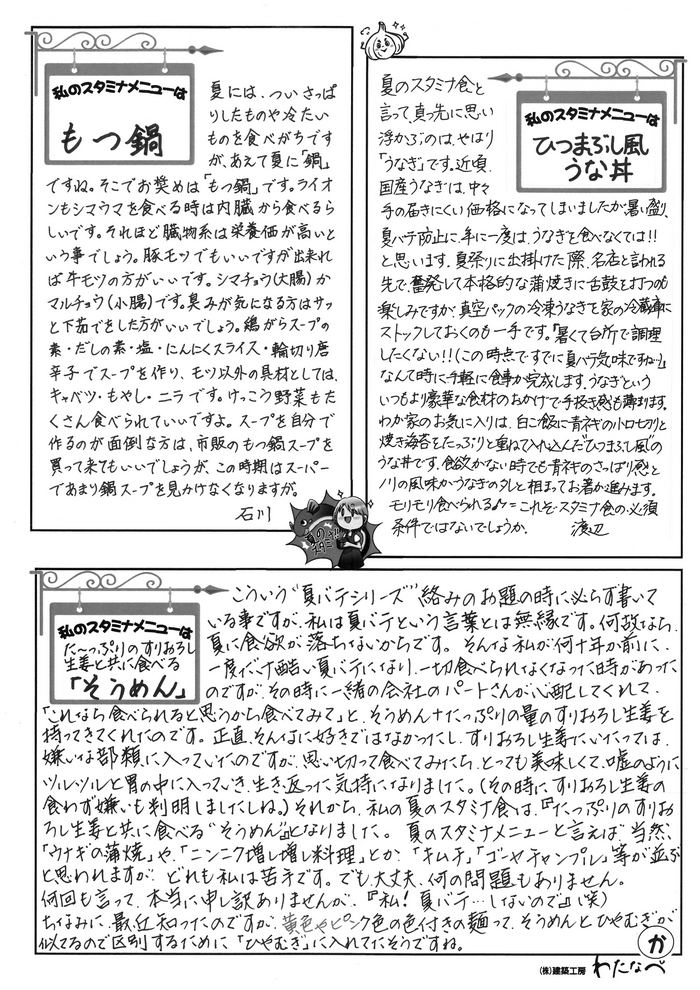 私のスタミナメニューは
もつ鍋
夏には、ついさっぱ
りしたものや冷たい
ものを食べがちです
が、あえて夏に「鍋」
ですね。そこでお奨めは「もつ鍋」です。ライオ
ンもシマウマを食べる時は内臓から食べるら
しいです。それほど臓物系は栄養価が高いと
いう事でしょう。豚モツでもいいですが出来れ
ば牛モツの方がいいです。シマチョウ(大腸)か
マルチョウ(小腸)です。臭みが気になる方はサッ
と下茹でをした方がいいでしょう。鶏がらスープの
素・だしの素・塩・にんにくスライス・輪切り唐
辛子でスープを作り、モツ以外の具材としては、
キャベツ・もやし・ニラです。けっこう野菜もた
くさん食べられていいですよ。スープを自分で
作るのが面倒な方は、市販のもつ鍋スープを
買って来てもいいでしょうが、この時期はスーパー
であまり鍋スープを見かけなくなりますが。
石川
私のスタミナメニューは
ひつまぶし風
うな丼
夏のスタミナ食と
言って、真っ先に思い
浮かぶのは、やはり
「うなぎ」です。近頃、
国産うなぎは、中々
手の届きにくい価格になってしまいましたが、暑い盛り、
夏バテ防止に、年に一度は、うなぎを食べなくては!!
と思います。夏祭りに出掛けた際、名店と言われる
先で、奮発して本格的な蒲焼きに舌鼓を打つのも
楽しみですが、真空パックの冷凍うなぎを家の冷蔵庫に
ストックしておくのも一手です。「暑くて台所で調理
したくない!!(この時点ですでに夏バテ気味ですね…)」
なんて時に、手軽に食事が完成します。うなぎという
いつもより豪華な食材のおかげで、手抜き感も薄まります。
わが家のお気に入りは、白ご飯に青ネギの小口切りと
焼き海苔をたっぷりと重ねて入れ込んだ"ひつまぶし風"の
うな丼です。食欲がない時でも青ネギのさっぱり感と
ノリの風味がうなぎのタレと相まってお箸が進みます。
モリモリ食べられる♪=これぞ、スタミナ食の必須
条件ではないでしょうか。 渡辺
夏の
スタミナ
私のスタミナメニューは
た〜っぷりのすりおろし
生姜と共に食べる
「そうめん」
こういう"夏バテシリーズ"絡みのお題の時に必らず書いて
いる事ですが、私は夏バテという言葉とは無縁です。何故なら、
夏に食欲が落ちないからです。そんな私が何十年か前に、
一度だけ酷い夏バテになり、一切食べられなくなった時があった
のですが、その時に一緒の会社のパートさんが心配してくれて、
「これなら食べられると思うから食べてみて」と、そうめん+たっぷりの量のすりおろし生姜を
持ってきてくれたのです。正直、そんなに好きではなかったし、すりおろし生姜にいたっては、
嫌いな部類に入っていたのですが、思い切って食べてみたら、とっても美味しくて、嘘のように
ツルツルと胃の中に入っていき、生き返った気持になりました。(その時に、すりおろし生姜の
食わず嫌いも判明しましたしね。)それから、私の夏のスタミナ食は、『たっぷりのすりお
ろし生姜と共に食べる"そうめん"』となりました。夏のスタミナメニューと言えば、当然、
「ウナギの蒲焼」や、「ニンニク増し増し料理」とか、「キムチ」「ゴーヤチャンプル」等が並ぶ
と思われますが、どれも私は苦手です。でも大丈夫、何の問題もありません。
何回も言って、本当に申し訳ありませんが、『私!夏バテ…しないので』(笑)
ちなみに、最近知ったのですが、黄色やピンク色の色付きの麺って、そうめんとひやむぎが
似てるので区別するために「ひやむぎ」に入れてたそうですね。
か
(株)建築工房 わたなべ